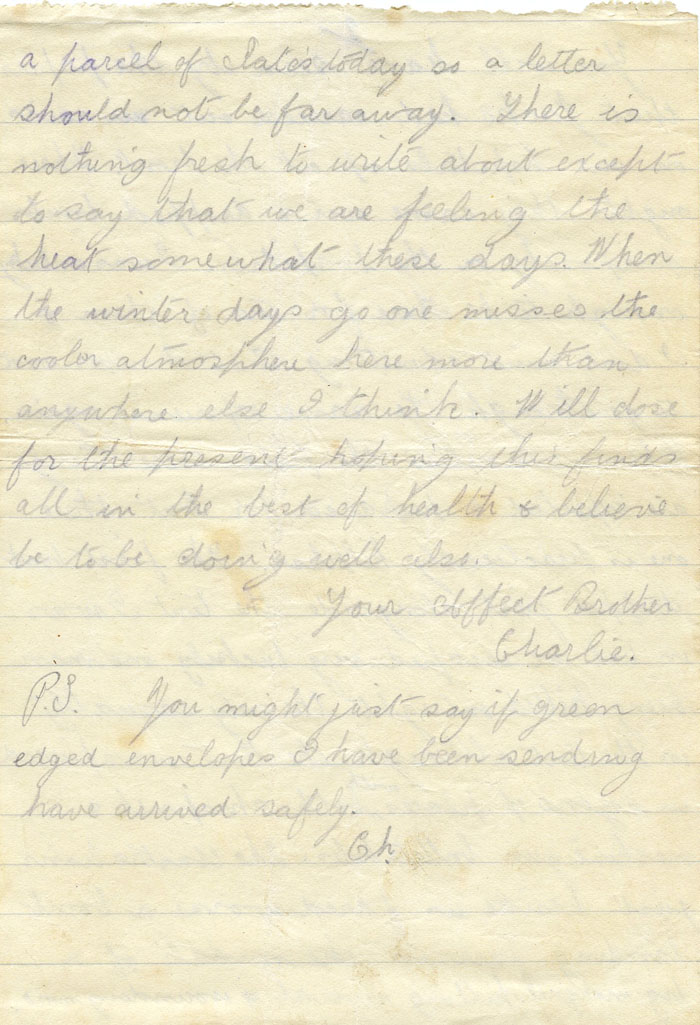 a parcel of Kate's today so a letter
should not be far away. There is
nothing fresh to write about except
to say that we are feeling the
heat somewhat these days. When
the winter days go one misses the
cooler atmosphere here more than
anywhere else I think. Will close
for the present hoping this finds
all in the best of health & believe
be to be doing well also.
Your Affect Brother
Charlie.
P.S. You might just say if green
edged envelopes I have been sending
have arrived safely.
Ch.